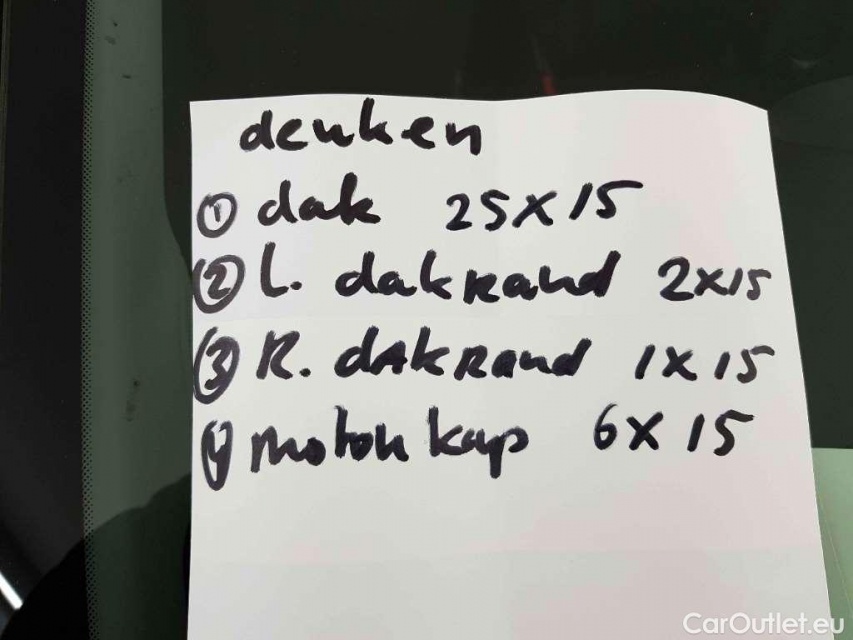 deuken
① dak 25x15
② L. dakrand 2x15
③ R. dakrand 1x15
④ motorkap 6x15
CarOutlet.eu